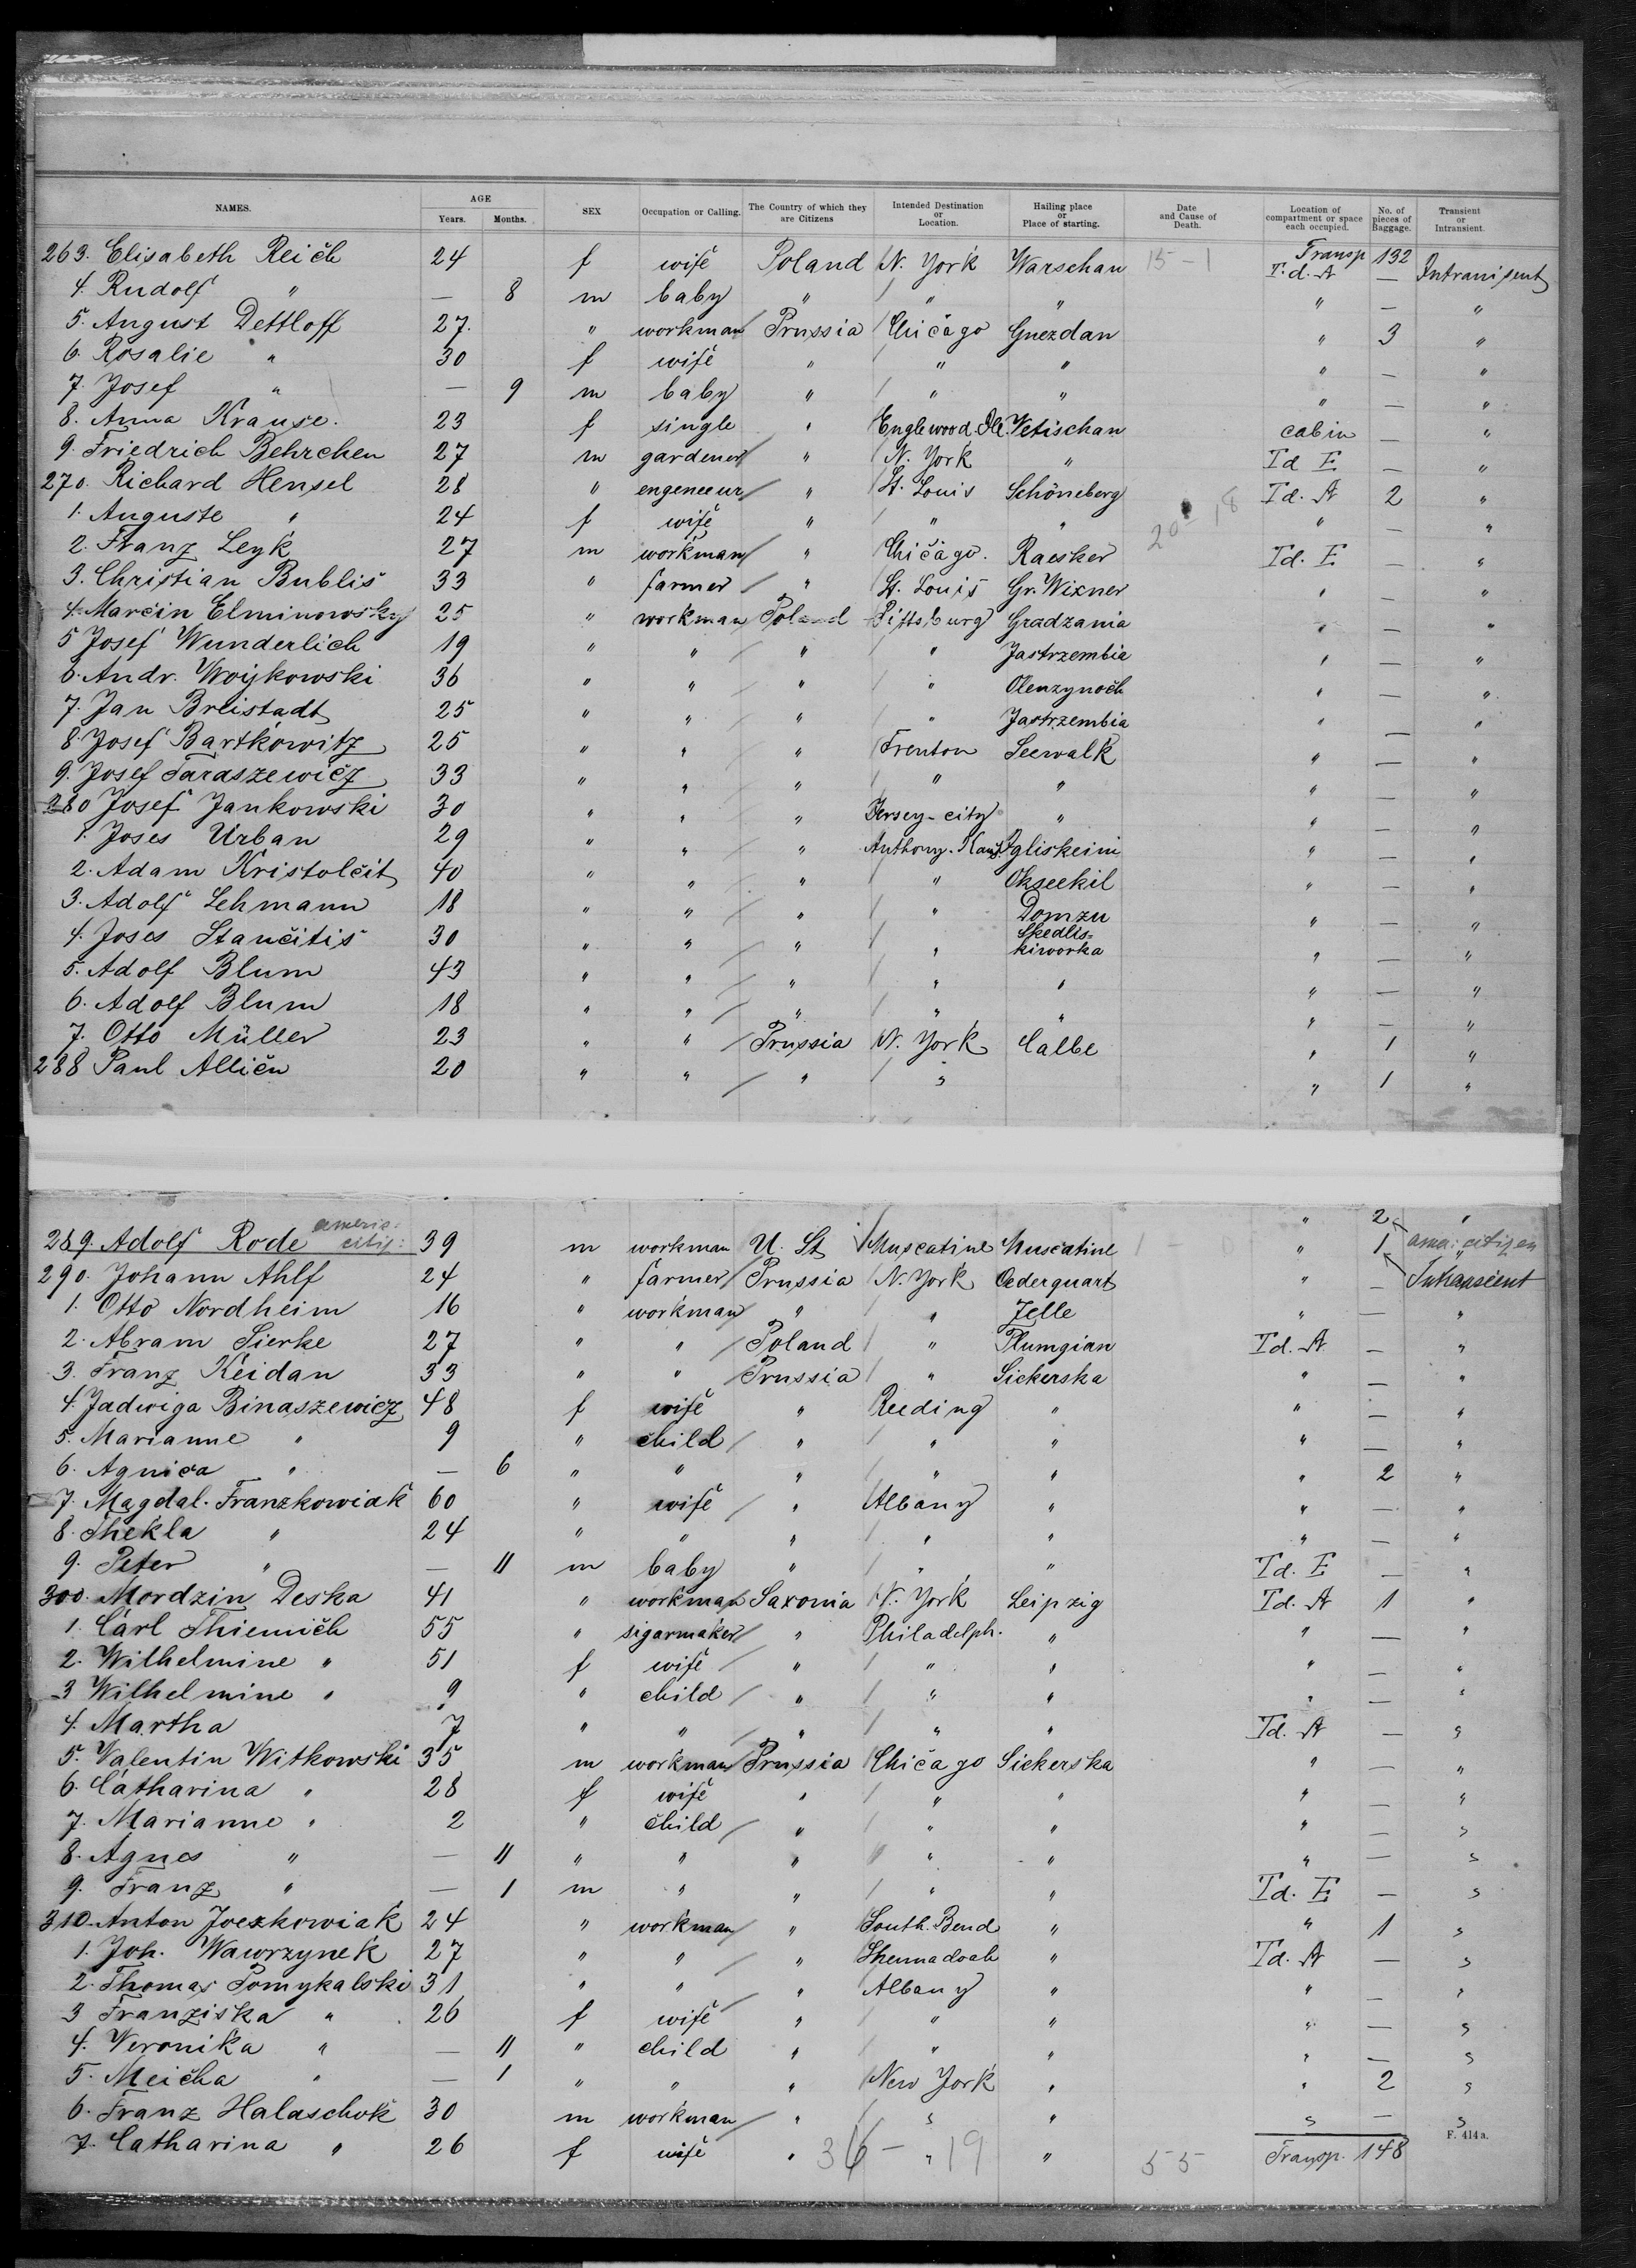 NAMES. AGE Years. Months. SEX Occupation or Calling. The Country of which they are Citizens Intended Destination or Location. Hailing place or Place of starting. Date and Cause of Death. Location of compartment or space each occupied. No. of pieces of Baggage. Transient or Intransient.
263. Elisabeth Reich 24 f wife Poland N. York Warschau 15 - 1 Transp 132 T.d. A — Intransient
4. Rudolf " — 8 m baby " " " " — "
5. August Dettloff 27. " workman Prussia Chicago Gnezdan " 3 "
6. Rosalie " 30 f wife " " " " — "
7. Josef " — 9 m baby " " " " — "
8. Anna Krause. 23 f single " Englewood Ill. Vetischau cabin — "
9. Friedrich Behrchen 27 m gardener " N. York " Td E — "
270. Richard Hensel 28 " engeneeur " St. Louis Schöneberg Td. A 2 "
1. Auguste " 24 f wife " " " 20 - 18 " — "
2. Franz Leyk 27 m workman " Chicago. Raesker Td. E — "
3. Christian Bublis 33 " farmer " St. Louis Gr. Wixner " — "
4. Marcin Elminowsky 25 " workman Poland Pittsburg Gradzania " — "
5 Josef Wunderlich 19 " " " " Jastrzembia " — "
6. Andr. Woijkowski 36 " " " " Olenzynoch " — "
7. Jan Breistadt 25 " " " " Jastrzembia " — "
8. Josef Bartkowitz 25 " " " Trenton Seewalk " — "
9. Josef Taraszewicz 33 " " " " " " — "
280 Josef Jankowski 30 " " " Jersey-city " " — "
1. Joses Urban 29 " " " Anthony. Kans. Igliskeim " — "
2. Adam Kristolcit 40 " " " " Okseekil " — "
3. Adolf Lehmann 18 " " " " Domzu " — "
4. Joses Stancitis 30 " " " " Skedlis=kiworka " — "
5. Adolf Blum 43 " " " " " " — "
6. Adolf Blum 18 " " " " " " — "
7. Otto Müller 23 " " Prussia N. York Calbe " 1 "
288 Paul Allien 20 " " " " " 1 "
" 2 "
289. Adolf Rode americ: citiz: 39 m workman U. St Muscatine Muscatine 1 - " 1 ama: citizen
290. Johann Ahlf 24 " farmer Prussia N. York Oederquart " — Intransient
1. Otto Nordheim 16 " workman " " Zelle " — "
2. Abram Sierke 27 " " Poland " Plumgian Td. A — "
3. Franz Keidan 33 " " Prussia " Sickerska " — "
4. Jadwiga Binaszewicz 48 f wife " Reeding " " — "
5. Marianne " 9 " child " " " " — "
6. Agnica " — 6 " " " " " " 2 "
7. Magdal. Franzkowiak 60 " wife " Albany " " — "
8. Thekla " 24 " " " " " " — "
9. Peter " — 11 m baby " " " Td. E — "
300. Mordzin Deska 41 " workman Saxonia N. York Leipzig Td. A 1 "
1. Carl Thiemich 55 " sigarmaker " Philadelph. " " — "
2. Wilhelmine " 51 f wife " " " " — "
3 Wilhelmine " 9 " child " " " " — "
4. Martha " 7 " " " " " Td. A — "
5. Valentin Witkowski 35 m workman Prussia Chicago Sickerska " — "
6. Catharina " 28 f wife " " " " — "
7. Marianne " 2 " child " " " " — "
8. Agnes " — 11 " " " " " " — "
9. Franz " — 1 m " " " " Td. E — "
310. Anton Joezkowiak 24 " workman " South. Bend " " 1 "
1. Joh. Wawrzynek 27 " " " Shennadoah " Td. A — "
2. Thomas Pomykalski 31 " " " Albany " " — "
3 Franziska " 26 f wife " " " " — "
4. Veronika " — 11 " child " " " " — "
5. Meicha " — 1 " " " New York " " 2 "
6. Franz Halaschok 30 m workman " " " " — "
7. Catharina " 26 f wife " " " 36 - 19 55 Transp. 148
F. 414a.